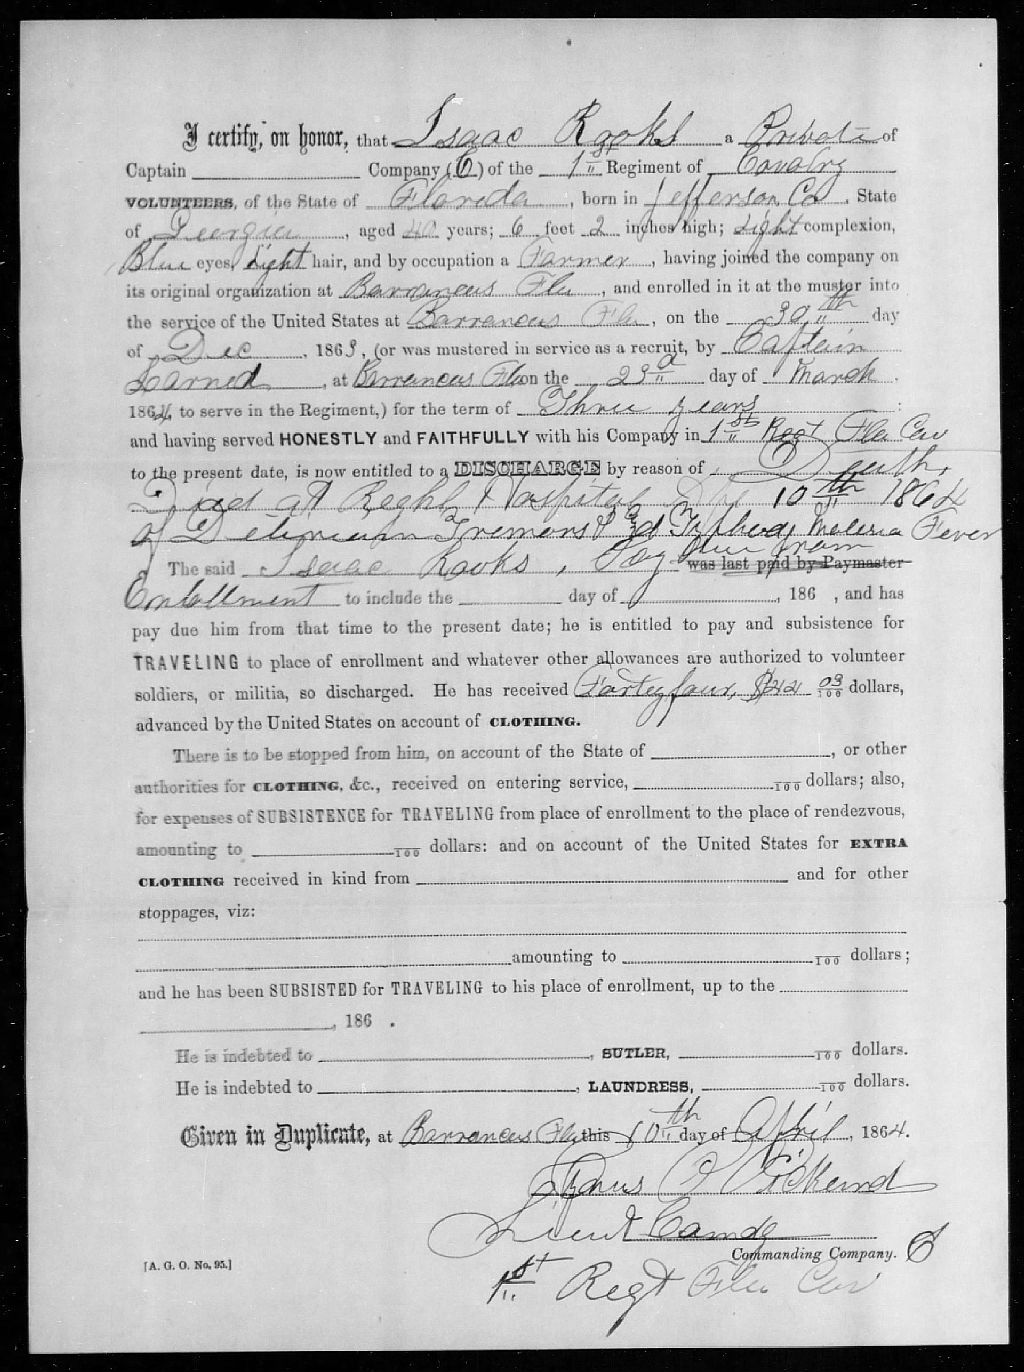 I certify, on honor, that Isaac Rooks a Private of
Captain Company (C) of the 1st Regiment of Cavalry
VOLUNTEERS, of the State of Florida, born in Jefferson Co. State
of Georgia, aged 40 years; 6 feet 2 inches high; Light complexion,
Blue eyes, Light hair, and by occupation a Farmer, having joined the company on
its original organization at Barrancas Fla, and enrolled in it at the muster into
the service of the United States at Barrancas Fla, on the 30th day
of Dec, 1863, (or was mustered in service as a recruit, by Captain
Larned, at Barrancas Fla on the 23d day of March
1864, to serve in the Regiment,) for the term of Three years :
and having served HONESTLY and FAITHFULLY with his Company in 1st Regt Fla Cav
to the present date, is now entitled to a DISCHARGE by reason of Death,
Died at Regtl Hospital 10th 1864
of Tremens & Fever
The said Isaac Rooks, Pay due from was last paid by Paymaster
Enrollment to include the day of , 186 , and has
pay due him from that time to the present date; he is entitled to pay and subsistence for
TRAVELING to place of enrollment and whatever other allowances are authorized to volunteer
soldiers, or militia, so discharged. He has received Forty four, $44 03/100 dollars,
advanced by the United States on account of CLOTHING.
There is to be stopped from him, on account of the State of , or other
authorities for CLOTHING, &c., received on entering service, /100 dollars; also,
for expenses of SUBSISTENCE for TRAVELING from place of enrollment to the place of rendezvous,
amounting to /100 dollars: and on account of the United States for EXTRA
CLOTHING received in kind from and for other
stoppages, viz:
amounting to /100 dollars;
and he has been SUBSISTED for TRAVELING to his place of enrollment, up to the
, 186 .
He is indebted to , SUTLER, /100 dollars.
He is indebted to , LAUNDRESS, /100 dollars.
Given in Duplicate, at Barrancas Fla this 10th day of April, 1864.
Lieut Comdg
Commanding Company. C
[A. G. O. No. 95.]
1st Regt Fla Cav